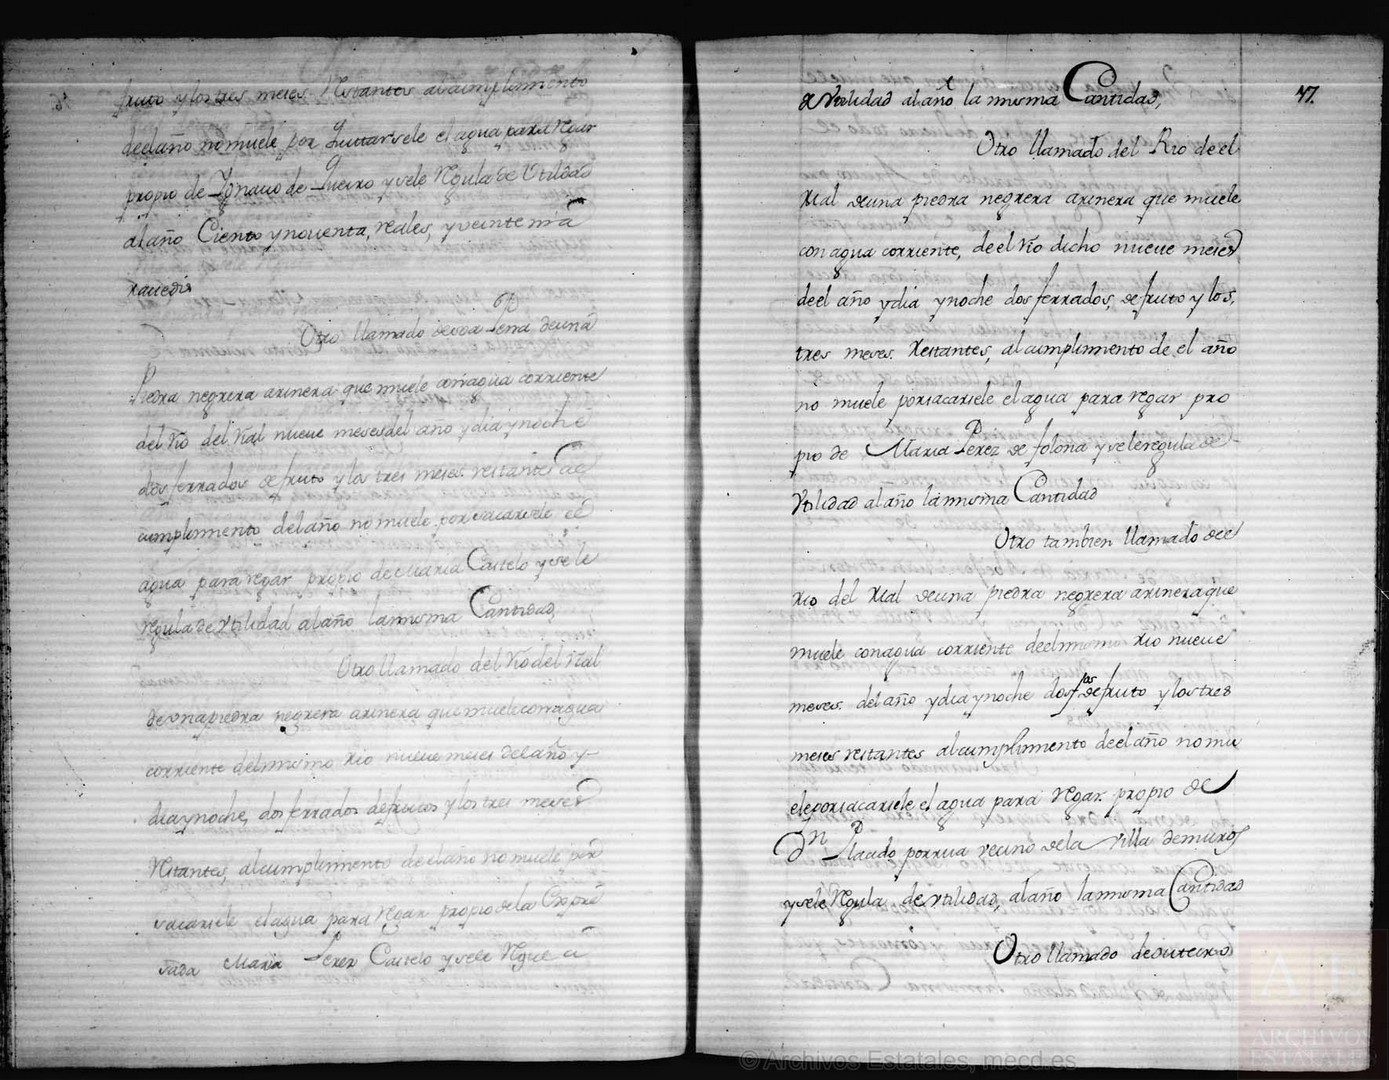 fruto y los tres meses Restantes al cumplimiento
deel año no muele por Quitarsele el agua para regar
propio de Ygnacio de Sueiro y sele Regula de Utilidad
al año Ciento y noventa, reales, y veinte ma
ravedis
Otro llamado de una
Piedra negrera arinera que muele con agua corriente
del Rio del Rial nueve meses del año y dia y noche
dos ferrados de fruto y los tres meses restantes al
cumplimento del año no muele por sacarsele el
agua para regar propio de Maria Castelo y se le
Regula de Vtilidad al año la misma Cantidad,
Otro llamado del Rio del Rial
de vna piedra negrera arinera que muele con agua
corriente del mismo Rio nueve meses del año y
dia y noche, dos ferrados de frutos y los tres meses
Restantes, al cumplimiento de el año no muele por
sacarsele el agua para Regar propio de la Expre
sada Maria Perez Castelo y sele Regula
47.
de Vtilidad al año la misma Cantidad,
Otro llamado del Rio de el
Rial de una piedra negrera arinera que muele
con agua corriente, de el rio dicho nueve meses
deel año y dia y noche dos ferrados, de fruto y los,
tres meses Restantes, al cumplimento de el año
no muele por sacarsele el agua para regar pro
pio de Maria Perez de folona y se le regula de
Vtilidad al año la misma Cantidad
Otro tambien llamado del
Rio del Rial de una piedra negrera arinera que
muele con agua corriente deel mismo Rio nueve
meses del año y dia y noche dos f.dos de fruto y los tres
meses restantes al cumplimento de el año no mu
ele por sacarsele el agua para Regar propio de
Dn Placido porrua vecino de la Villa de muros
y sele Regula de vtilidad, al año la misma Cantidad
Otro llamado de outeiro
© Archivos Estatales, mecd.es
AE
ARCHIVOS
ESTATALES